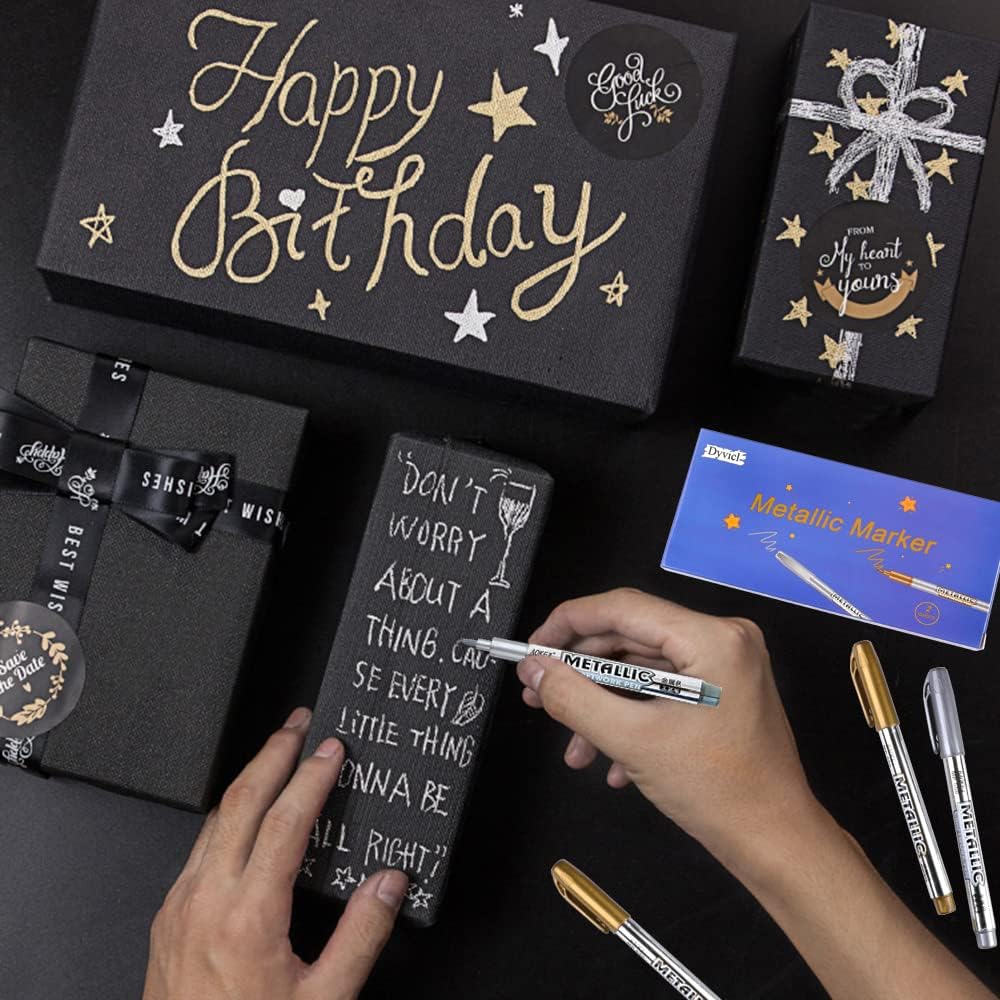 Happy
Birthday
Good
Luck
FROM
My heart
TO
yours
WISHES
Happy
WISH
BEST WIS
Save
the Date
"DON'T
WORRY
ABOUT A
THING. CAU-
SE EVERY
LITTLE THING
ONNA BE
ALL RIGHT"
Dyvicl
Metallic Marker
METALLIC
METALLIC
METALLIC
METALLIC
METALLIC